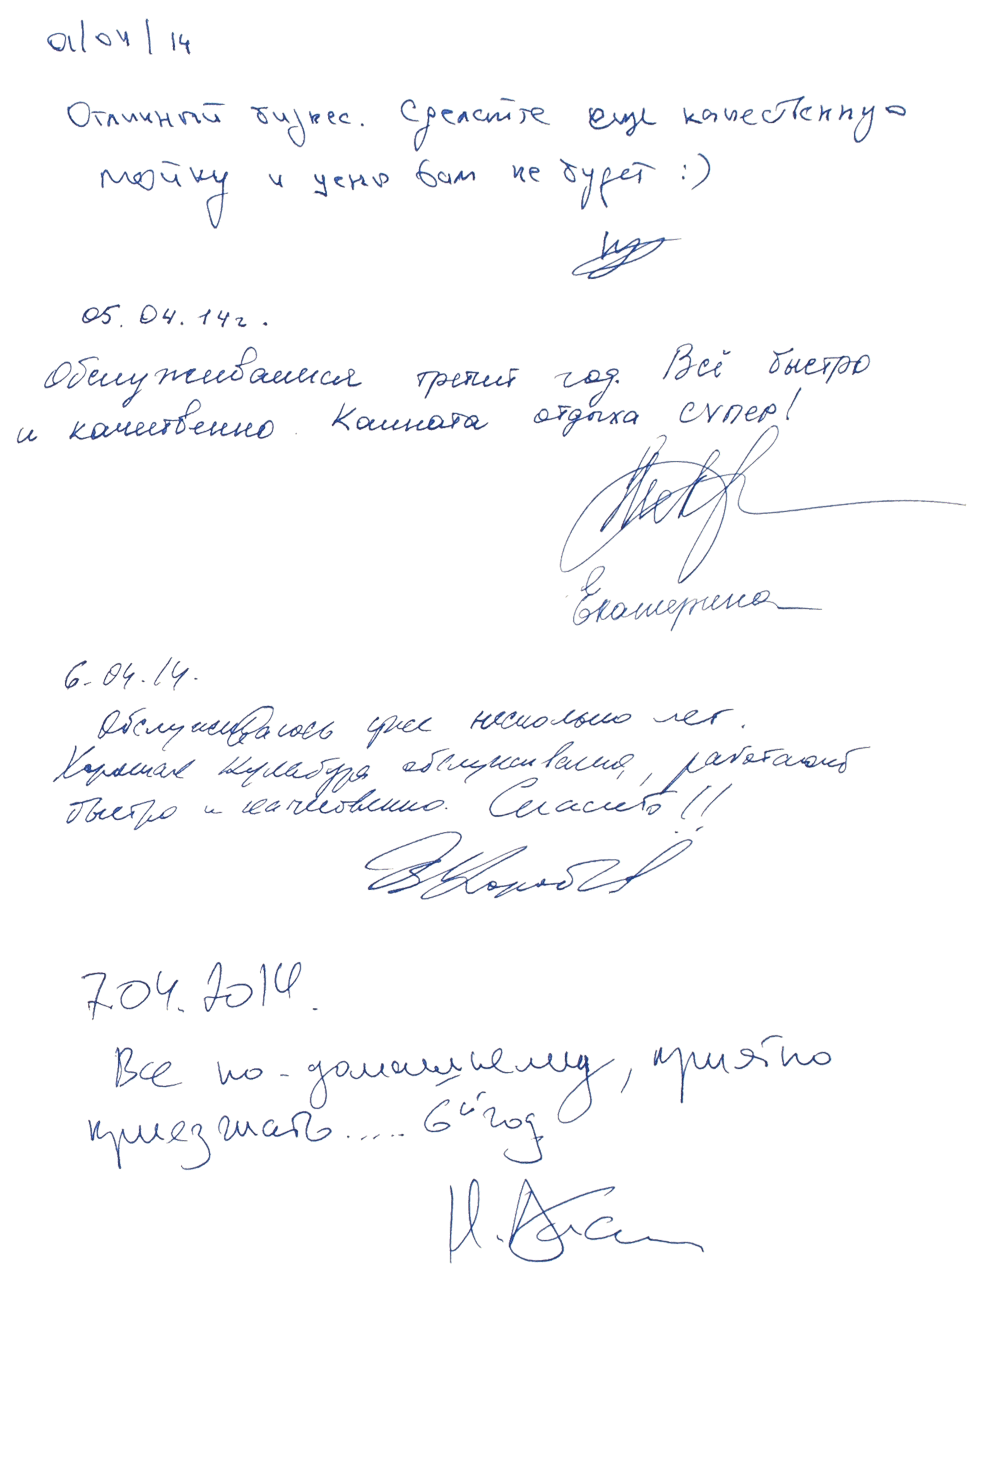 01/04/14
Отличный бизнес. Сделайте еще качественную
мойку и цены вам не будет :)
05.04.14г.
Обслуживаемся третий год. Всё быстро
и качественно. Комната отдыха супер!
Екатерина
6.04.14.
Обслуживаюсь уже несколько лет.
Хорошая культура обслуживания, работают
быстро и качественно. Спасибо!!
7.04.2014.
Все по-домашнему, приятно
приезжать..... 6ой год